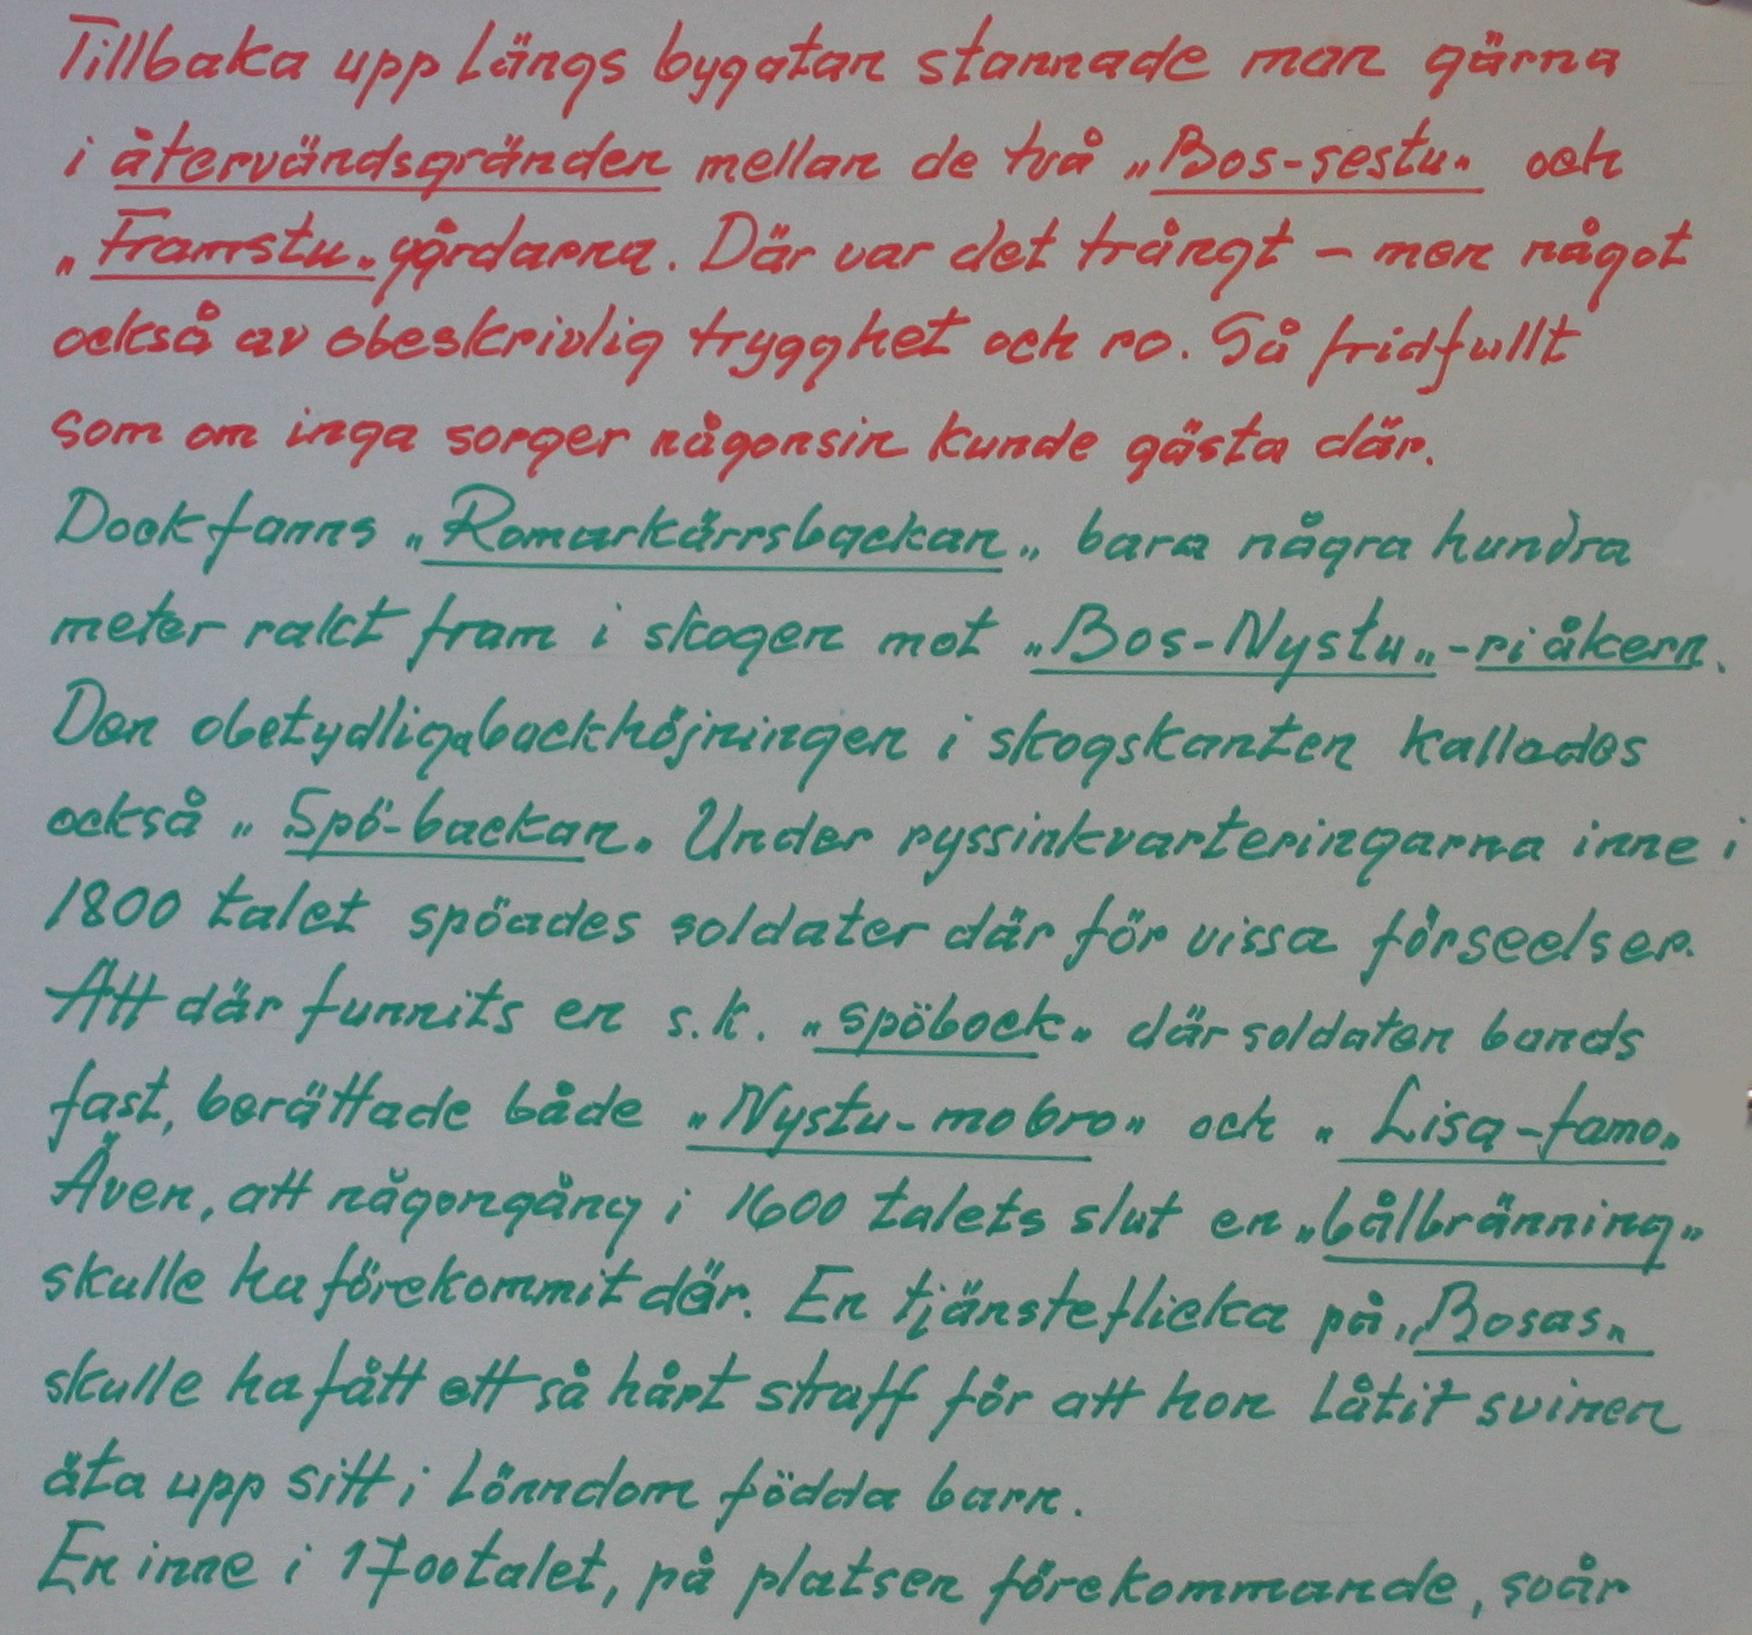 Tillbaka upp längs bygatan stannade man gärna
i återvändsgränden mellan de två „Bos-sestu" och
„Framstu„gårdarna. Där var det trångt – men något
också av obeskrivlig trygghet och ro. Så fridfullt
som om inga sorger någonsin kunde gästa där.
Dock fanns „Romarkärrsbackan„ bara några hundra
meter rakt fram i skogen mot „Bos-Nystu„-ri åkern.
Den obetydliga backhöjningen i skogskanten kallades
också „Spö-backan". Under ryssinkvarteringarna inne i
1800 talet spöades soldater där för vissa förseelser.
Att där funnits en s.k. „spöbock" där soldaten bands
fast, berättade både „Nystu-mobro" och „Lisa-famo"
Även, att någongång i 1600 talets slut en „bålbränning"
skulle ha förekommit där. En tjänsteflicka på „Bosas"
skulle ha fått ett så hårt straff för att hon låtit svinen
äta upp sitt i lönndom födda barn.
En inne i 1700talet, på platsen förekommande, svår